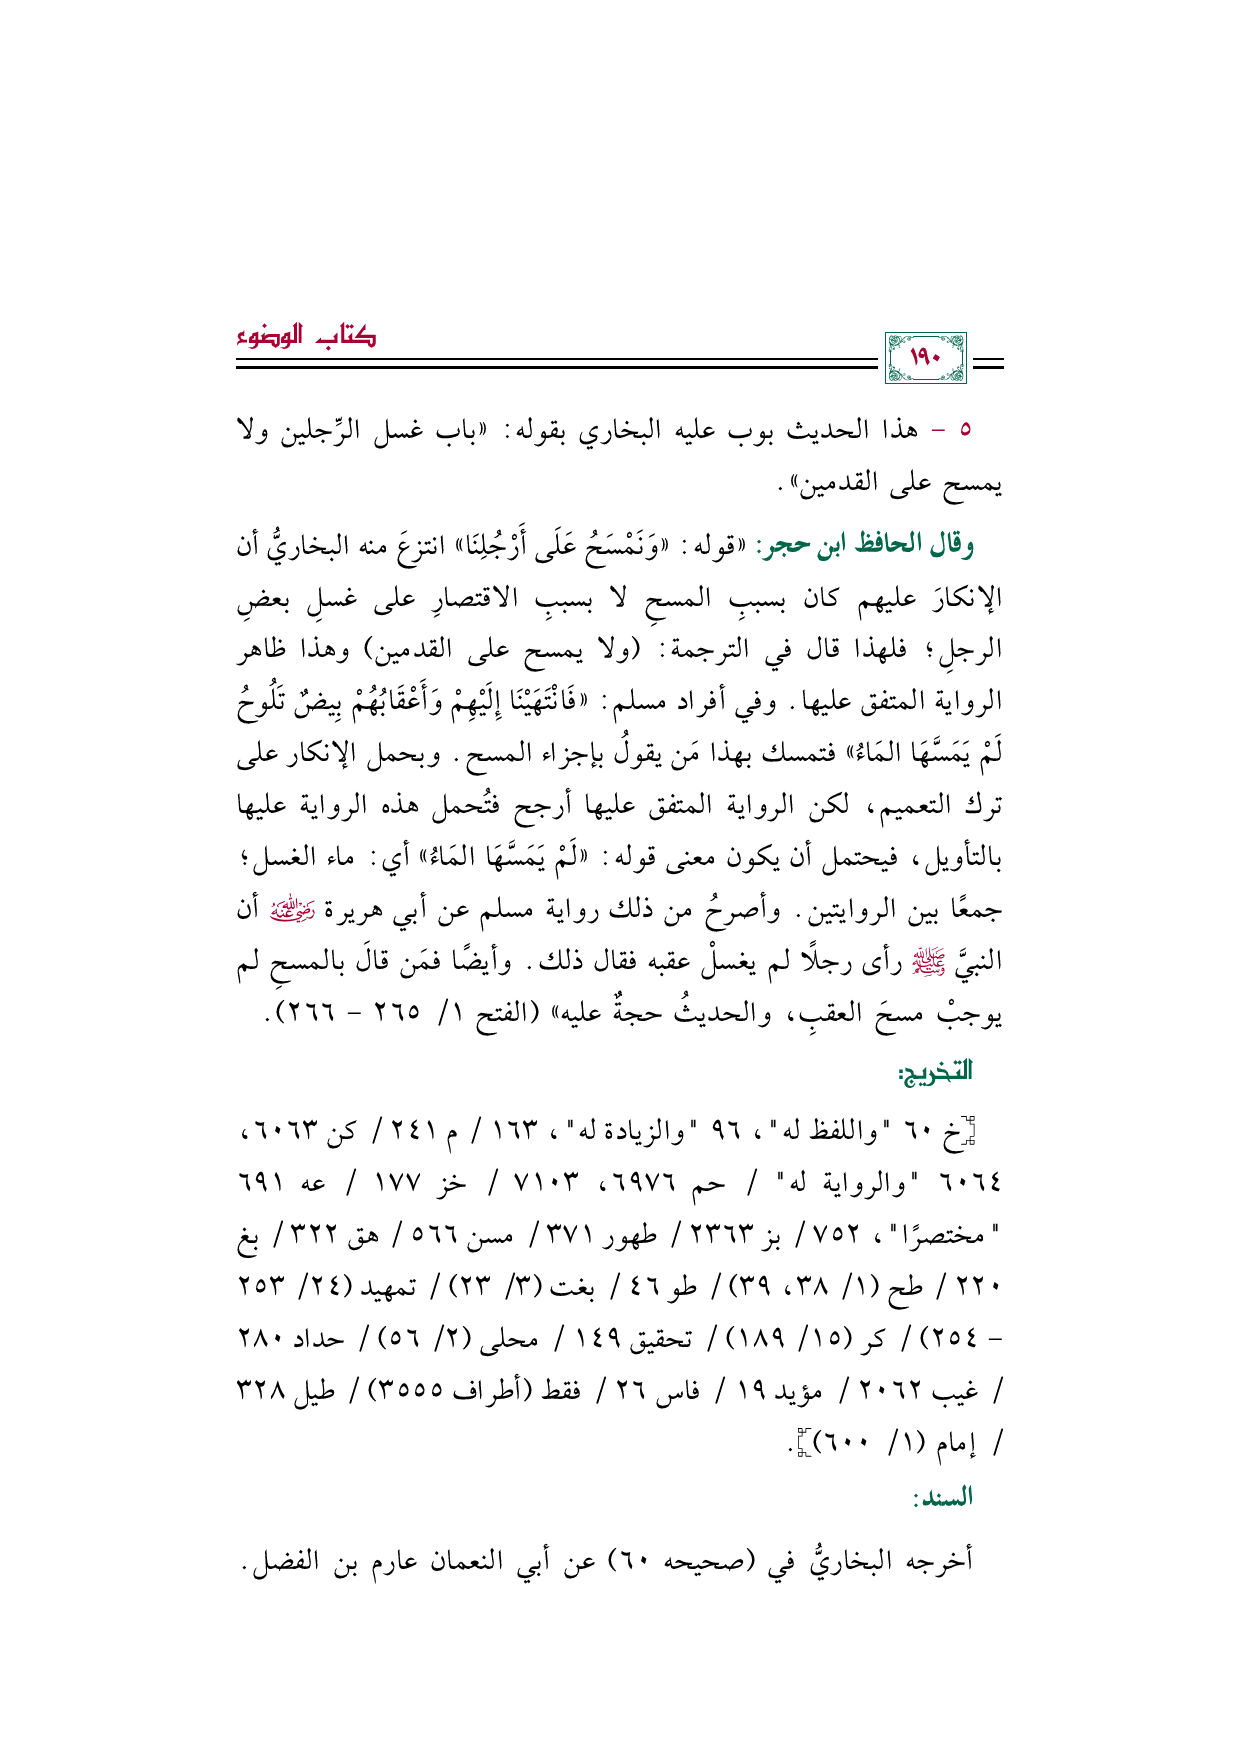 كتاب الوضوء
١٩٠
٥ - هذا الحديث بوب عليه البخاري بقوله: «باب غسل الرِّجلين ولا
يمسح على القدمين».
وقال الحافظ ابن حجر: «قوله: «وَنَمْسَحُ عَلَى أَرْجُلِنَا» انتزعَ منه البخاريُّ أن
الإنكارَ عليهم كان بسببِ المسحِ لا بسببِ الاقتصارِ على غسلِ بعضِ
الرجلِ؛ فلهذا قال في الترجمة: (ولا يمسح على القدمين) وهذا ظاهر
الرواية المتفق عليها. وفي أفراد مسلم: «فَانْتَهَيْنَا إِلَيْهِمْ وَأَعْقَابُهُمْ بِيضٌ تَلُوحُ
لَمْ يَمَسَّهَا المَاءُ» فتمسك بهذا مَن يقولُ بإجزاء المسح. وبحمل الإنكار على
ترك التعميم، لكن الرواية المتفق عليها أرجح فتُحمل هذه الرواية عليها
بالتأويل، فيحتمل أن يكون معنى قوله: «لَمْ يَمَسَّهَا المَاءُ» أي: ماء الغسل؛
جمعًا بين الروايتين. وأصرحُ من ذلك رواية مسلم عن أبي هريرة رضي الله عنه أن
النبيَّ ﷺ رأى رجلًا لم يغسلْ عقبه فقال ذلك. وأيضًا فمَن قالَ بالمسحِ لم
يوجبْ مسحَ العقبِ، والحديثُ حجةٌ عليه» (الفتح ١/ ٢٦٥ - ٢٦٦).
التخريج:
[خ ٦٠ "واللفظ له"، ٩٦ "والزيادة له"، ١٦٣ / م ٢٤١ / كن ٦٠٦٣،
٦٠٦٤ "والرواية له" / حم ٦٩٧٦، ٧١٠٣ / خز ١٧٧ / عه ٦٩١
"مختصرًا"، ٧٥٢ / بز ٢٣٦٣ / طهور ٣٧١ / مسن ٥٦٦ / هق ٣٢٢ / بغ
٢٢٠ / طح (١/ ٣٨، ٣٩) / طو ٤٦ / بغت (٣/ ٢٣) / تمهيد (٢٤/ ٢٥٣
- ٢٥٤) / كر (١٥/ ١٨٩) / تحقيق ١٤٩ / محلى (٢/ ٥٦) / حداد ٢٨٠
/ غيب ٢٠٦٢ / مؤيد ١٩ / فاس ٢٦ / فقط (أطراف ٣٥٥٥) / طيل ٣٢٨
/ إمام (١/ ٦٠٠)].
السند:
أخرجه البخاريُّ في (صحيحه ٦٠) عن أبي النعمان عارم بن الفضل.